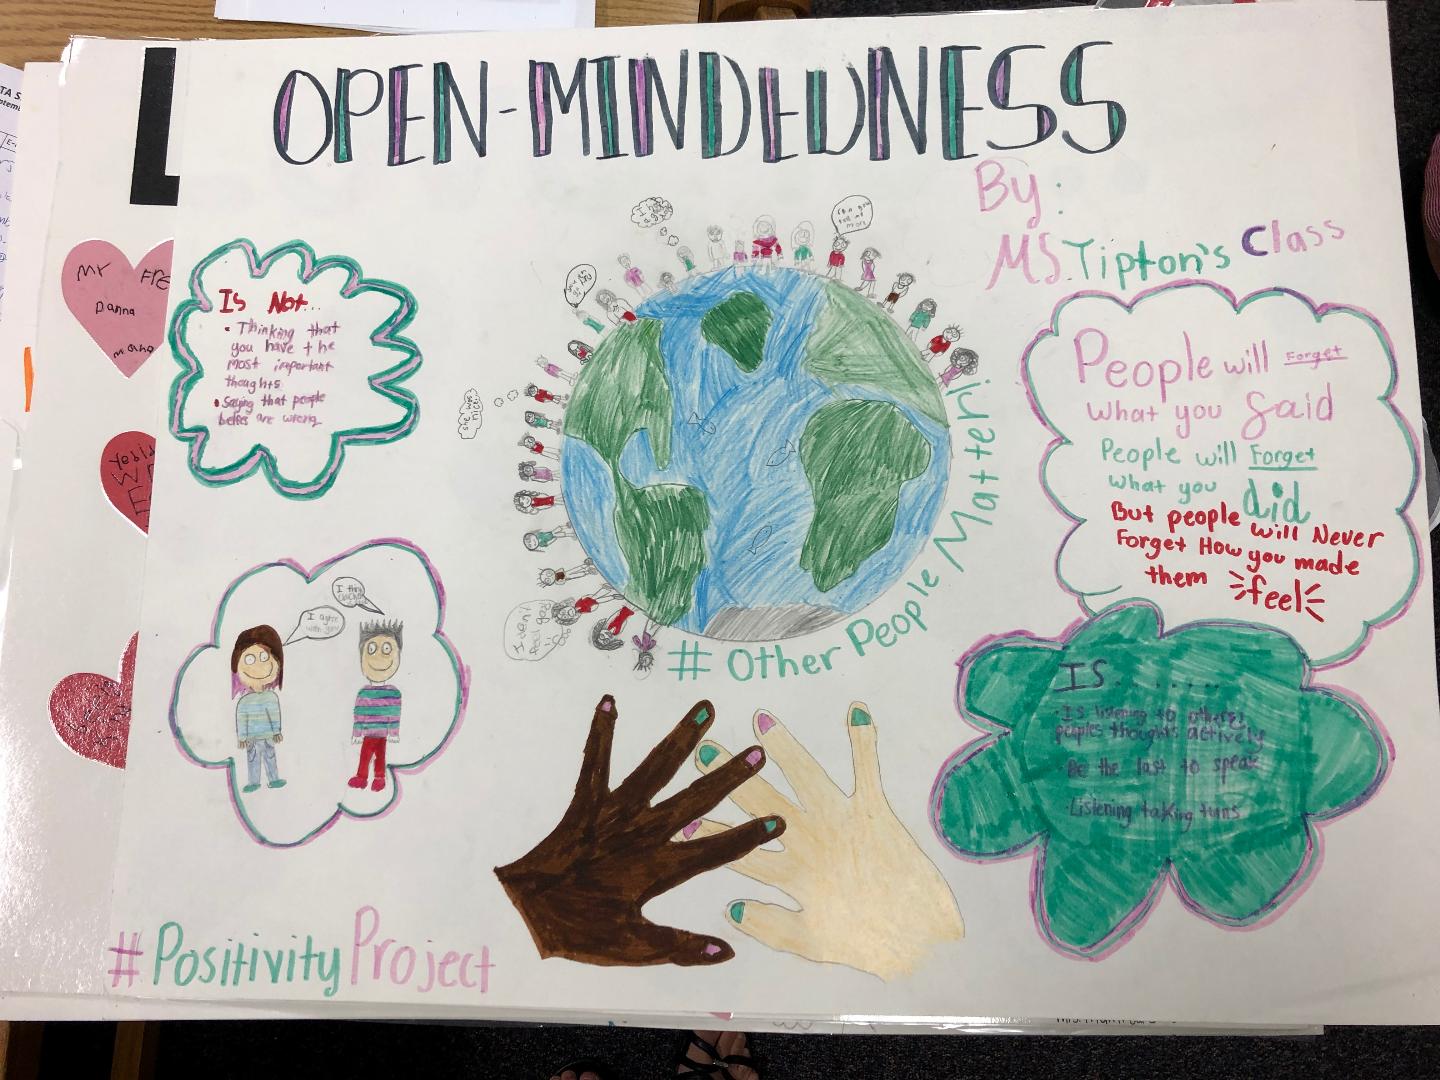 OPEN-MINDEDNESS
By:
MS. Tipton's Class
Mr FRE
Danna
Is Not...
• Thinking that
you have the
most important
thoughts
• Saying that people
belfes are wrong
People will Forget
what you said
People will Forget
what you did
But people will Never
Forget How you made
them feel
she was
nice...
# Other People Matter!
I agree
with you
IS........
· Is listening to others
peoples thoughts actively
· Be the last to speak
· Listening taking tuns
# Positivity Project